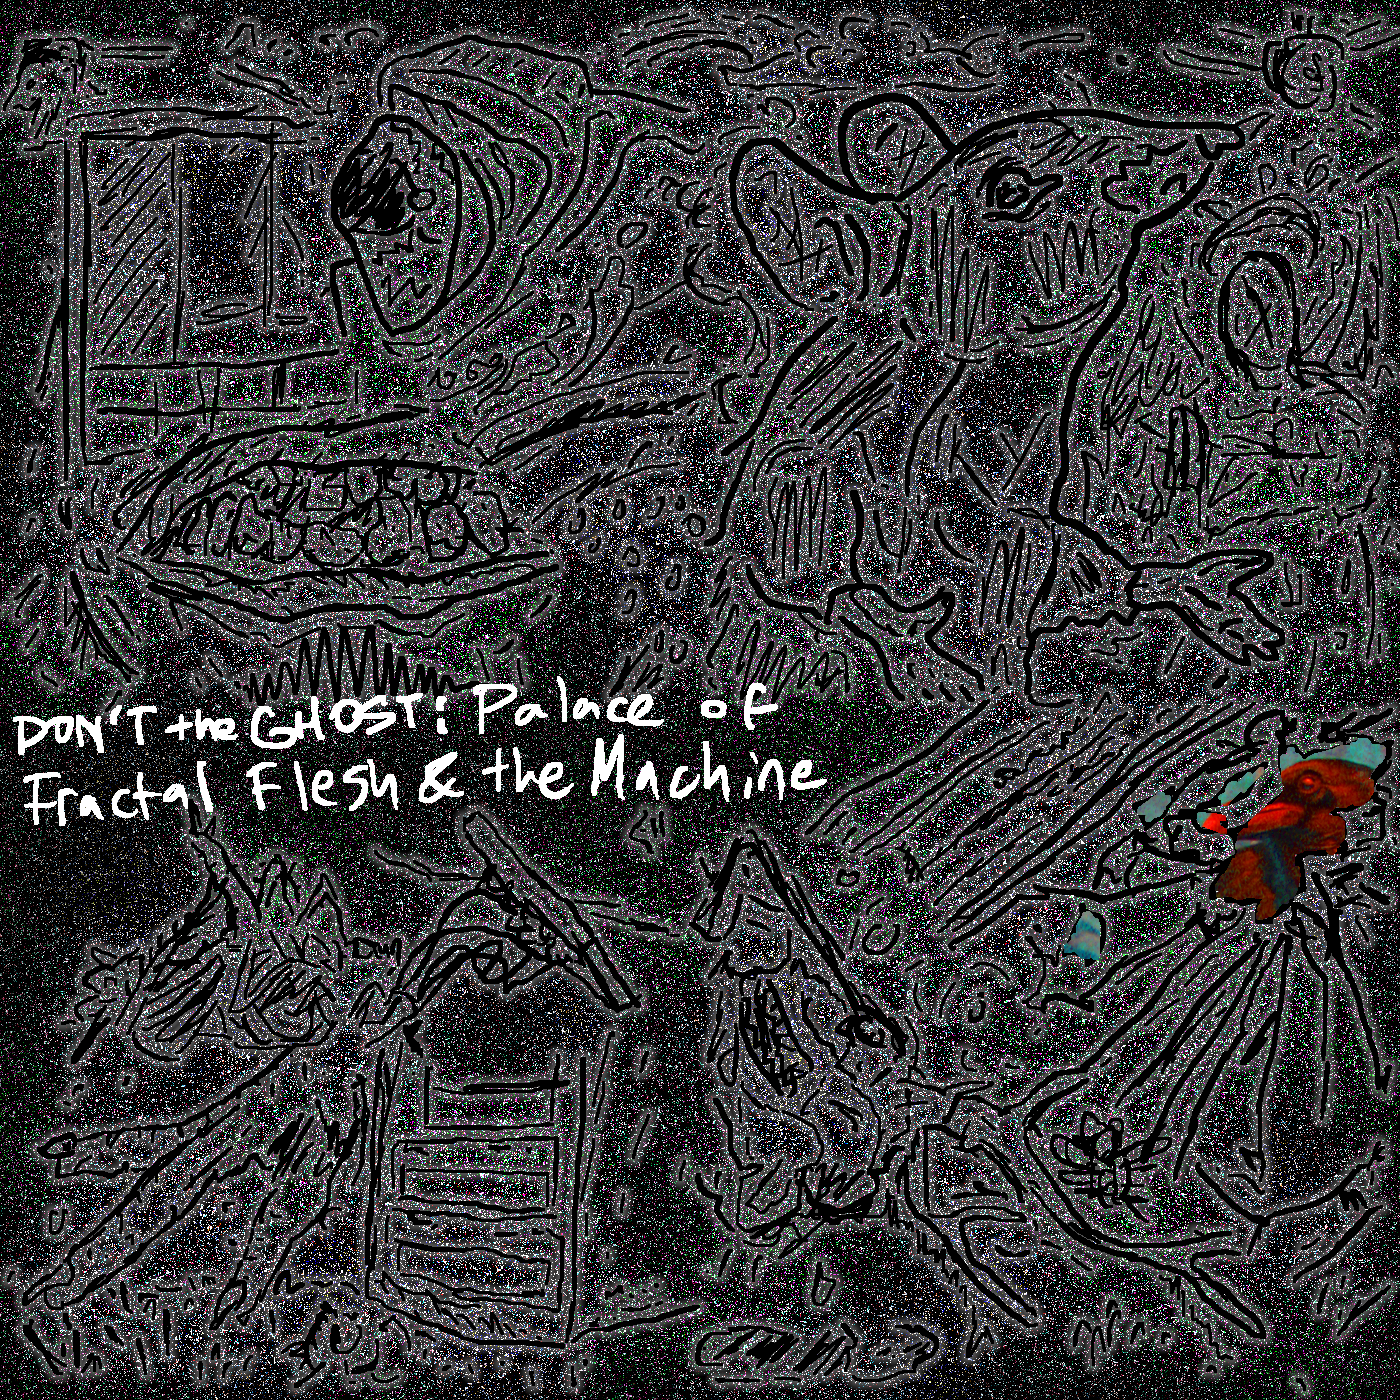 DON'T the GHOST: Palace of
Fractal Flesh & the Machine